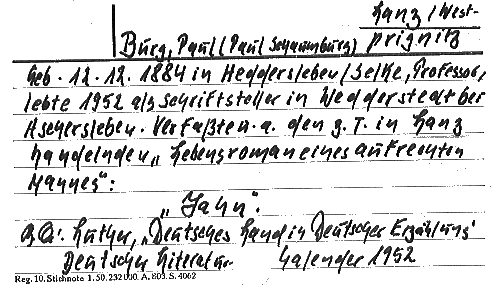 Lanz/West-
Burg, Paul (Paul Schaumburg) prignitz
Geb. 12.12.1884 in Heddersleben/Selke, Professor,
lebte 1952 als Schriftsteller in Wedderstedt bei
Aschersleben. Verfaßte u.a. den z.T. in Lanz
handelnden „Lebensroman eines aufrechten
Mannes":
„Jahn".
Luther, „Deutsches Land in Deutscher Erzählung"
Deutscher Literatur- Kalender 1952
Reg. 10. Stichnote 1. 50. 232 000. A. 803. S. 4062